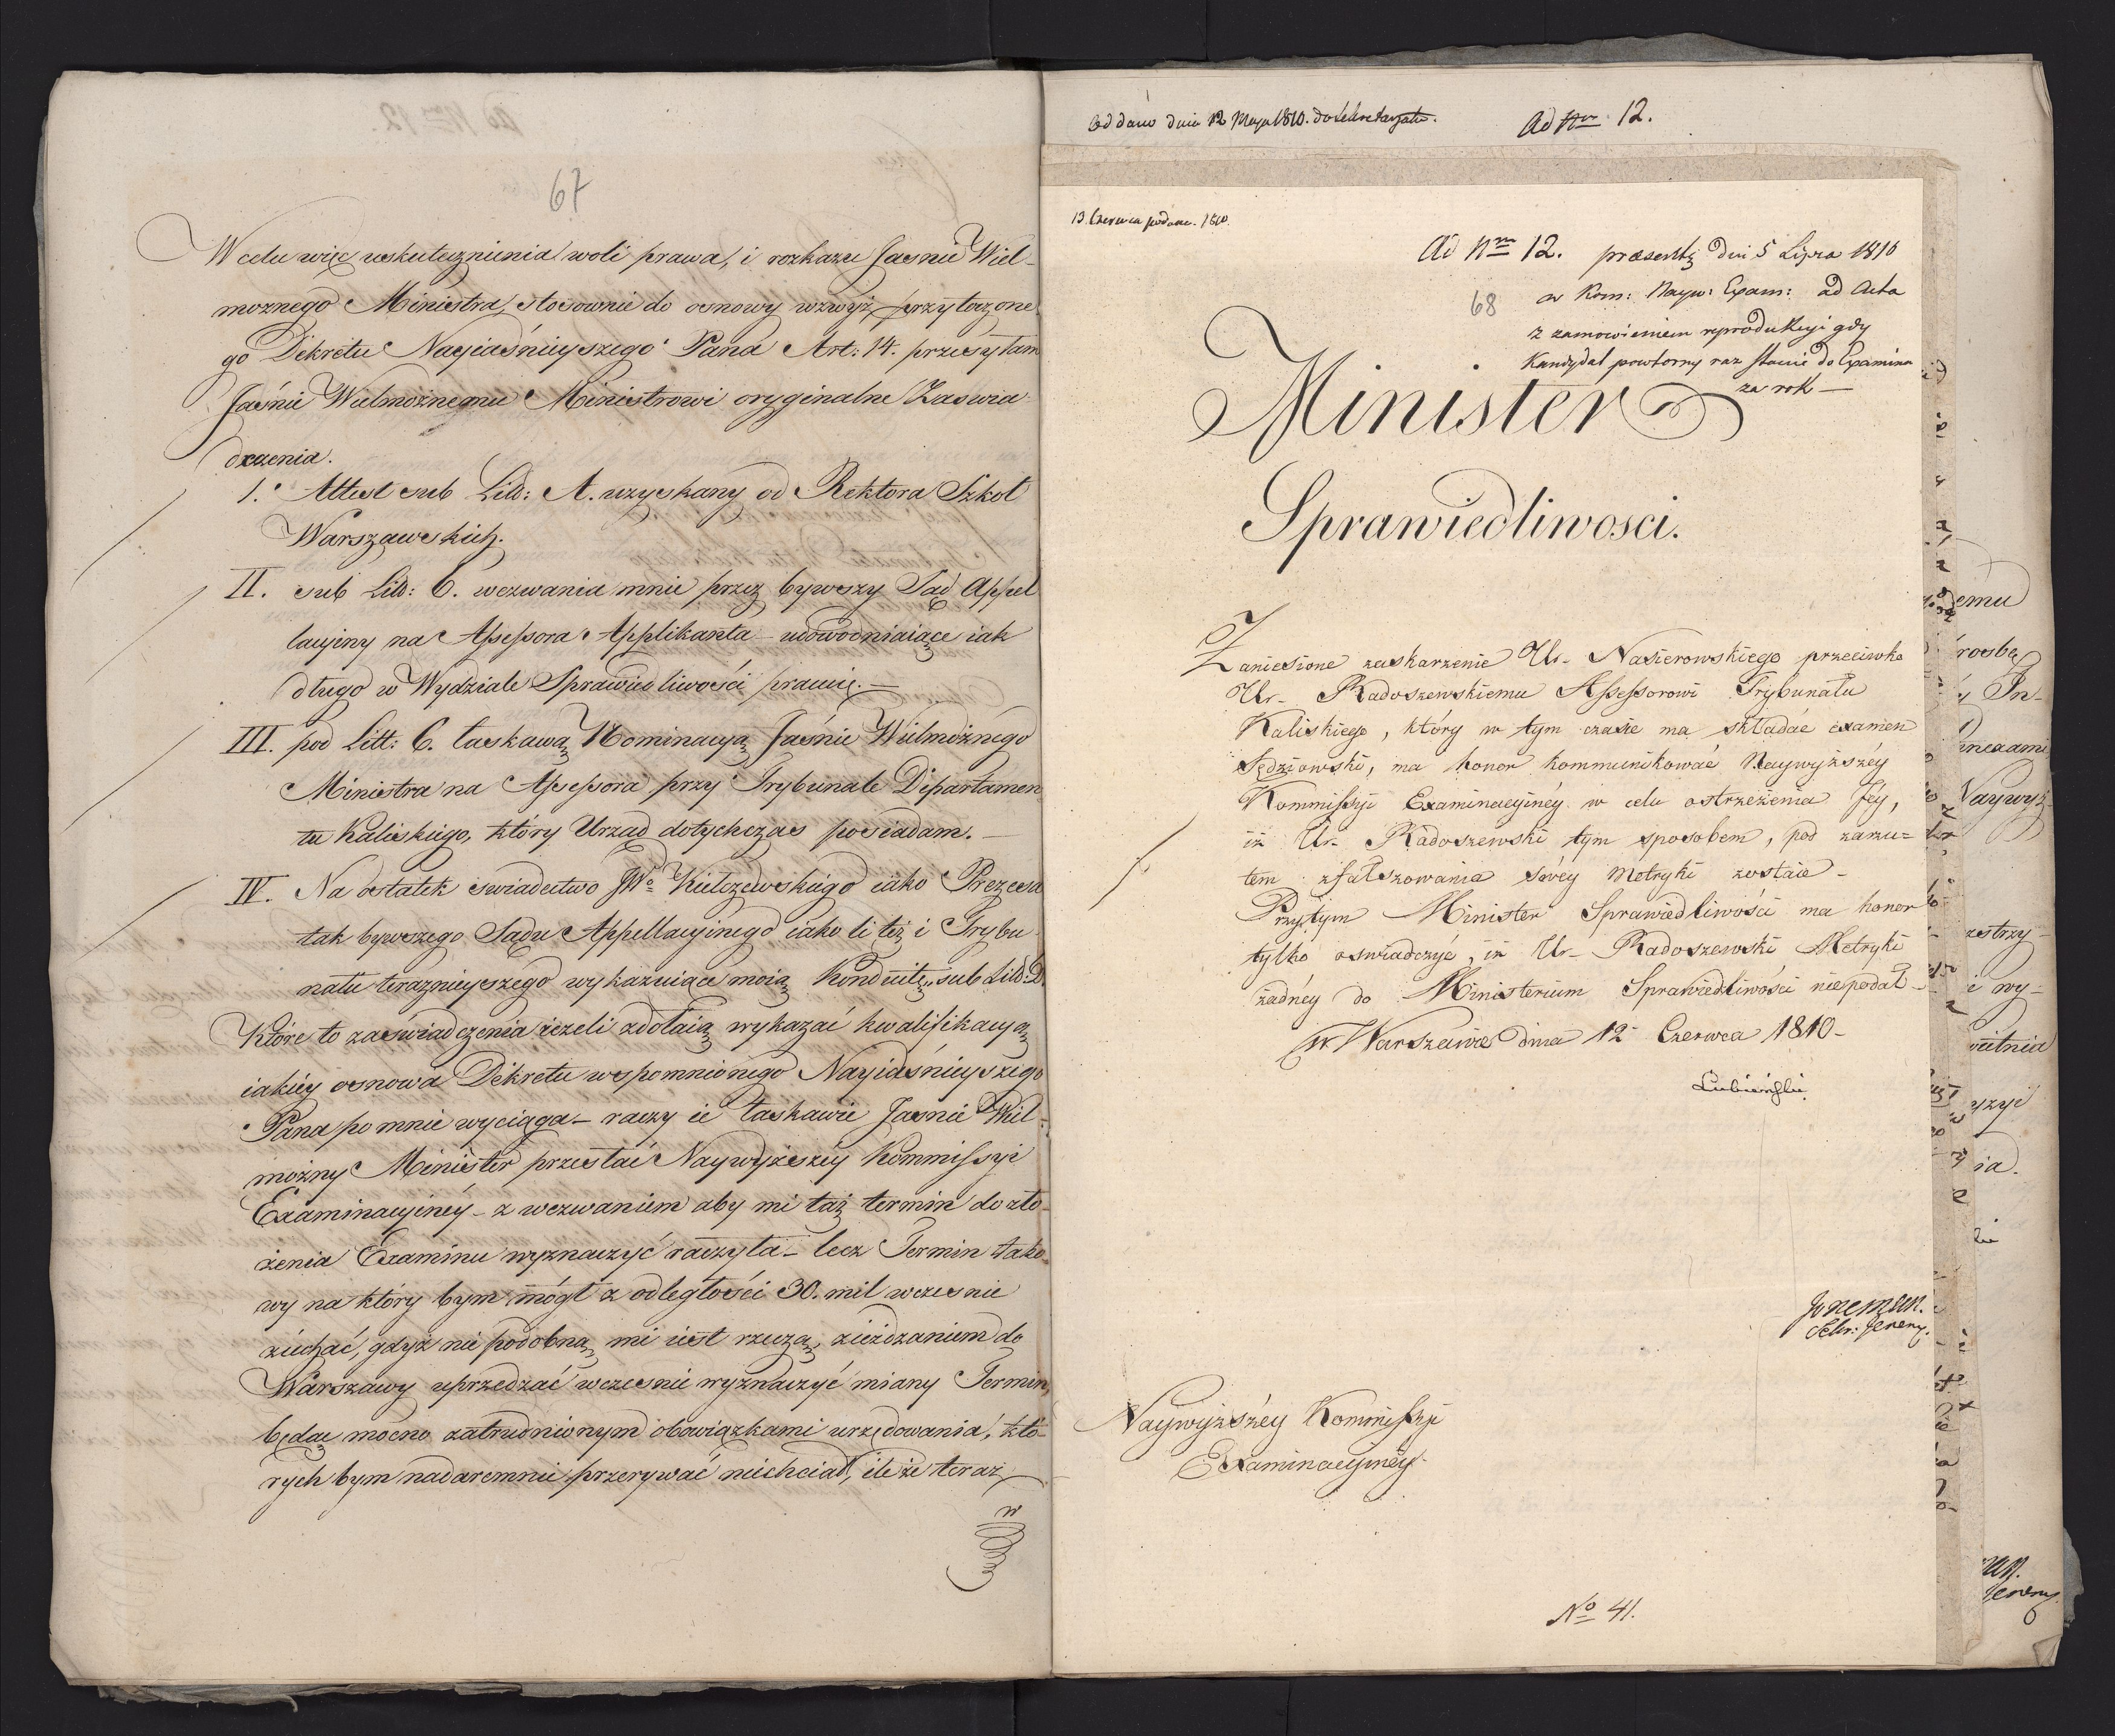 67
W celu więc uskutecznienia woli prawa, i rozkazu Jaśnie Wiel-
możnego Ministra, stosownie do osnowy wzwyż przytoczone
go Dekretu Nayiaśnieyszego Pana Art: 14. przesyłam
Jaśnie Wielmożnemu Ministrowi oryginalne Zaswia
dczenia.
1. Attest sub Litt: A. uzyskany od Rektora Szkoł
Warszawskich.
II. sub Litt: B. wezwania mnie przez bywszy Sąd Appel
lacyiny na Assessora Applikanta – udowodniaiące iak
długo w Wydziale Sprawiedliwości pracuię. –
III. pod Litt: C. łaskawą Nominacyą Jaśnie Wielmożnego
Ministra na Assessora przy Trybunale Departamen
tu Kaliskiego, który Urząd dotychczas posiadam. –
IV. Na ostatek swiadectwo JWo Kiełczewskiego iako Prezesa
tak bywszego Sądu Appellacyinego iako li też i Trybu
nału teraznieyszego wykazuiące moią Konduitę sub Litt: D.
Które to zaświadczenia ieżeli zdołaią wykazać kwalifikacyą
iakiéy osnowa Dekretu wspomnionego Nayiaśnieyszego
Pana po mnie wyciąga – raczy ie łaskawie Jaśnie Wiel-
możny Minister przesłać Naywyższéy Kommissyi
Examinacyinéy – z wezwaniem aby mi taż termin do zło-
żenia Examinu wyznaczyć raczyła – lecz Termin tako-
wy na który bym mógł z odległości 30. mil wczesnie
ziechać, gdyż nie podobną mi iest rzeczą, zieżdzaniem do
Warszawy uprzedzać wczesnie wyznaczyć miany Termin,
będąc mocno zatrudnionym obowiązkami urzędowania, któ-
rych bym nadaremnie przerywać niechciał, ile że teraz
w
Oddano dnia 12 Maja 1810. do Sekretaryatu.
Ad Nrm 12.
13. Czerwca podano. 1810.
Ad Nrm 12. præsent: dni 5 Lipca 1810
68
w Kom: Nayw: Exam: ad Acta
z zamowieniem reprodukcyi gdy
Kandydat powtorny raz stanie do Examinu
za rok —
Minister
Sprawiedliwosci.
Zaniesione zaskarzenie Ur- Nasierowskiego przeciwko
Ur- Radoszewskiemu Assessorowi Trybunału
Kaliskiego, który w tym czasie ma składać examen
Sędziowski, ma honor kommunikować Naywyższéy
Kommissyi Examinacyinéy w celu ostrzeżenia Jéy,
iż Ur- Radoszewski tym sposobem, pod zarzu=
tem zfałszowania swéy Metryki zostaie –
Przytym Minister Sprawiedliwości ma honor
tylko oswiadczyć, iż Ur- Radoszewski Metryki
żadnéy do Ministerium Sprawiedliwości niepodał –
w Warszawie dnia 12 Czerwca 1810 –
Łubieński
Sekr: Jeneny.
Naywyższéy Kommissyi
Examinacyinéy.
No 41.